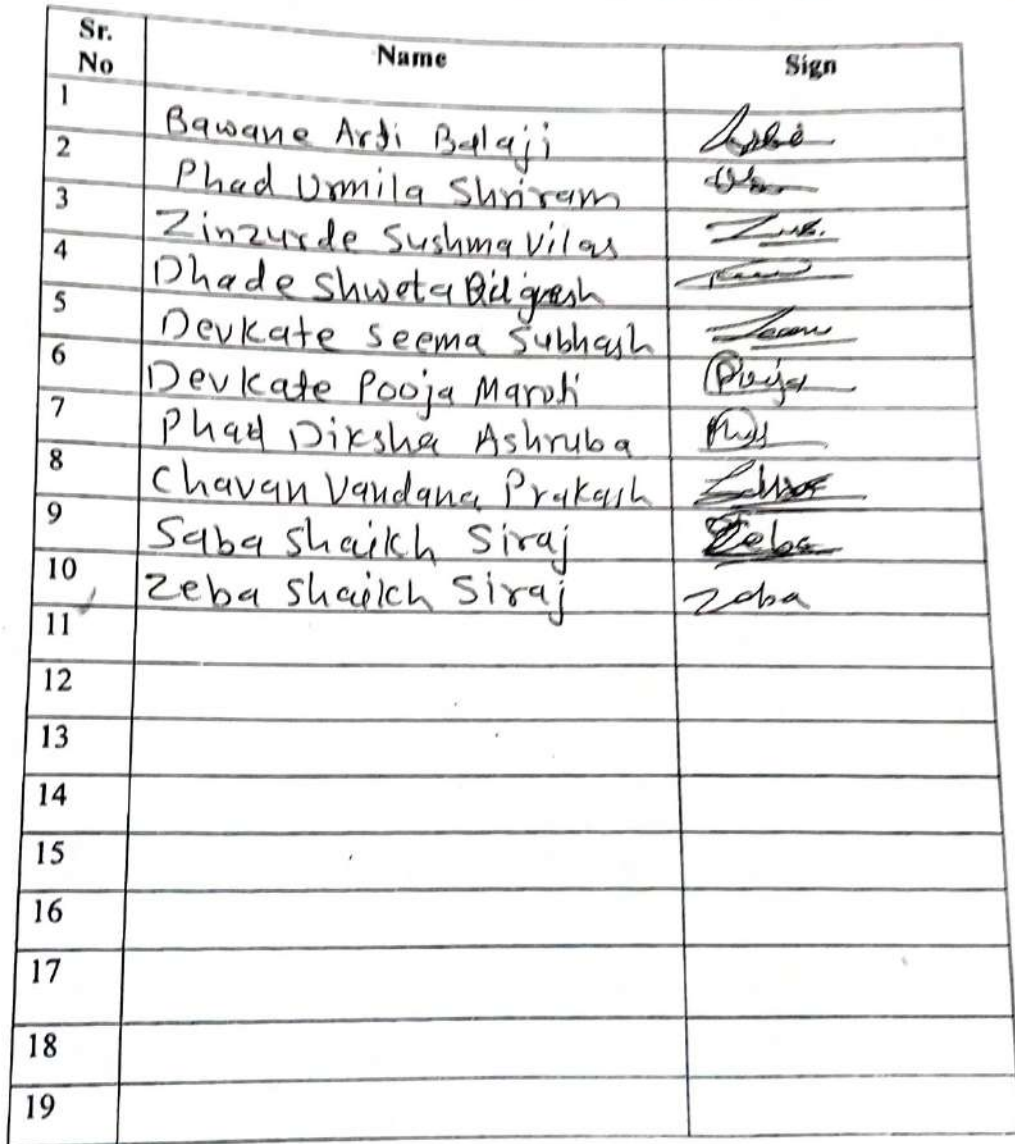 Sr. No Name Sign
1 Bawane Arti Balaji
2 Phad Urmila Shriram
3 Zinzurde Sushma Vilas
4 Dhade Shweta
5 Devkate Seema Subhash
6 Devkate Pooja Maroti Pooja
7 Phad Diksha Ashruba
8 Chavan Vandana Prakash
9 Saba Shaikh Siraj Zeba
10 Zeba Shaikh Siraj Zeba
11
12
13
14
15
16
17
18
19